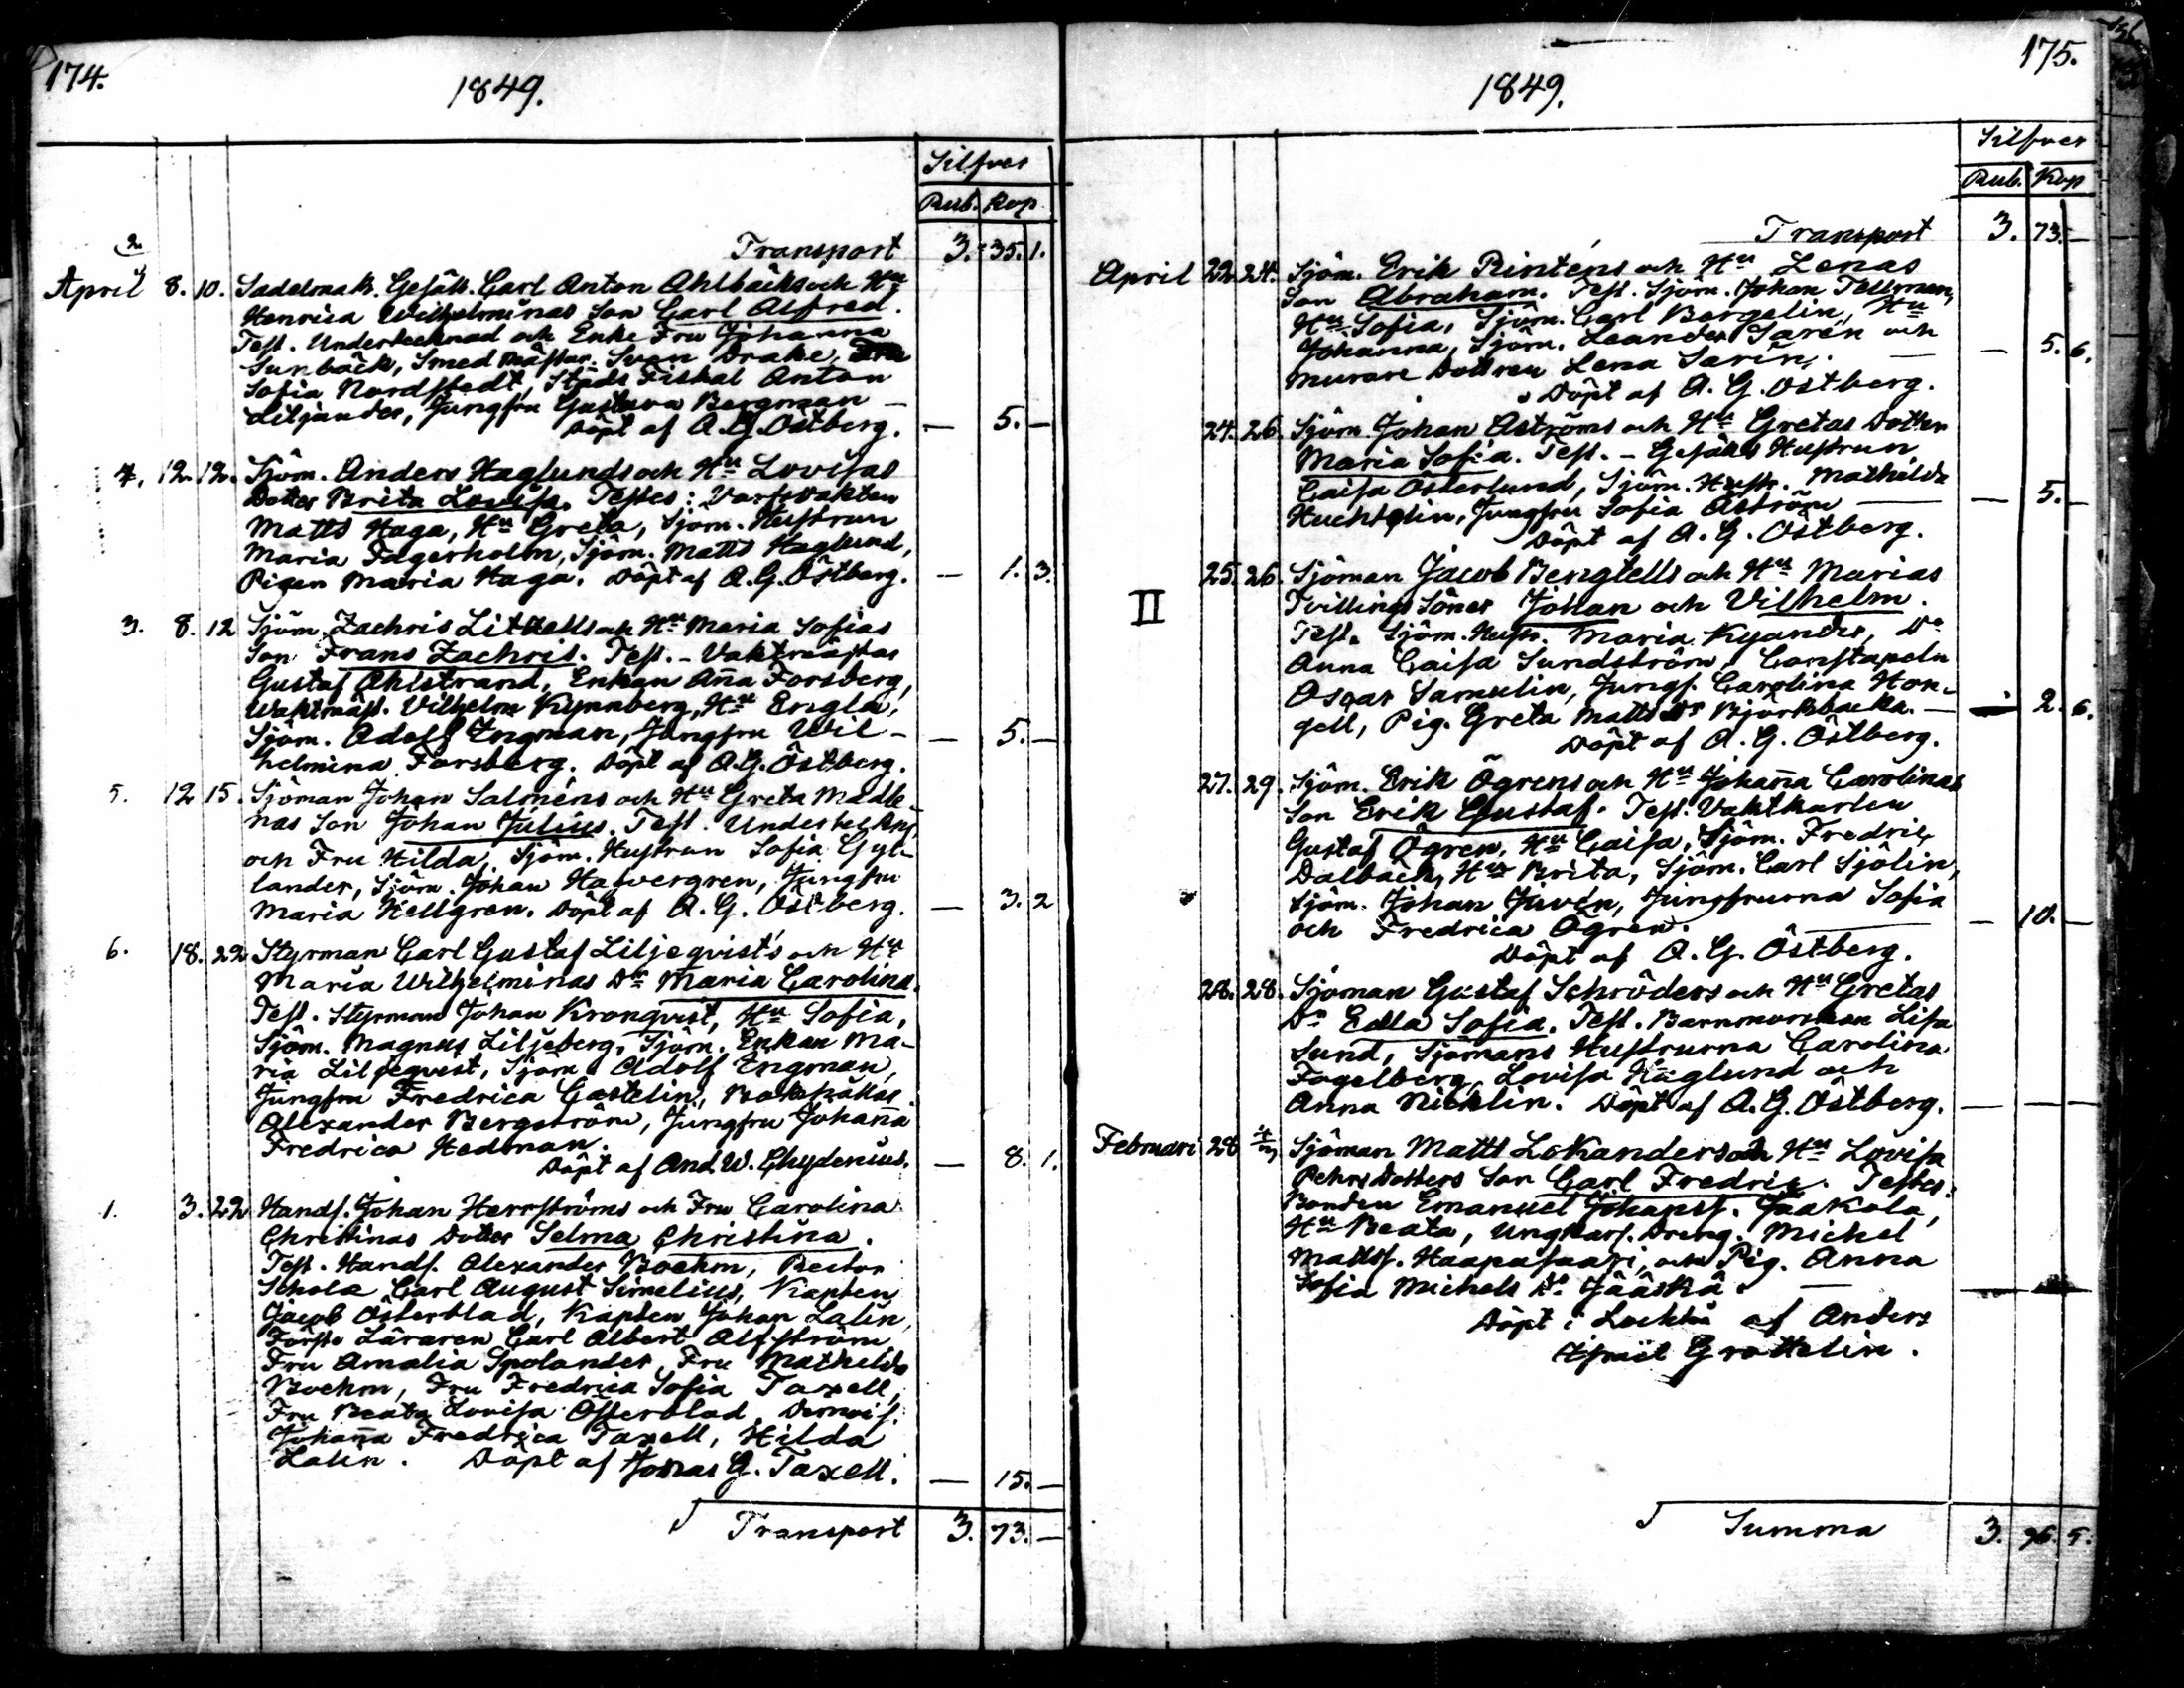 174.
1849.
Silfver
Rub. Kop
Transport 3. 35. 1.
2
April 8. 10. Sadelmak. Gesäll. Carl Anton Ahlbäcks och Hu
Henrica Wilhelminas Son Carl Alfred.
Test. Undertecknad och Enke Fru Johanna
Sunbäck, Smed Mästar. Sven Drake,
Sofia Nordstedt, Stads Fiskal Anton
Liljander, Jungfru Gustava Bergman —
Döpt af A. G. Östberg. — 5. —
4. 12. 12. Sjöm. Anders Haglunds och Hu Lovisas
Dotter Brita Lovisa. Testes: Varfsvakten
Matts Haga, Hu Greta, Sjöm. Hustrun
Maria Fagerholm, Sjöm. Matts Haglund,
Pigan Maria Haga. Döpt af A. G. Östberg. — 1. 3.
3. 8. 12 Sjöm. Zachris Littells och Hu Maria Sofias
Son Frans Zachris. Test. – Vaktmästar
Gustaf Ahlstrand, Enkan Ana Forsberg,
Waktmäst. Vilhelm Kynnberg, Hu Engla,
Sjöm. Adolf Engman, Jungfru Wil-
helmina Forsberg. Döpt af A. G. Östberg. — 5. —
5. 12 15. Sjöman Johan Salméns och Hu Greta Madle-
nas Son Johan Julius. Test. Underteckn.
och Fru Hilda, Sjöm. Hustrun Sofia Gyl-
lander, Sjöm. Johan Hafvergren, Jungfru
Maria Hellgren. Döpt af A. G. Östberg. — 3. 2
6. 18. 22 Styrman Carl Gustaf Liljeqvist's och Hu
Maria Wilhelminas Dr Maria Carolina.
Test. Styrman Johan Kronqvist, Hu Sofia,
Sjöm. Magnus Liljeberg, Sjöm. Enkan Ma-
ria Liljeqvist, Sjöm. Adolf Engman,
Jungfru Fredrica Castelin, Bokhållar.
Alexander Bergström, Jungfru Johanna
Fredrica Hedman.
Döpt af And. W. Chydenius. — 8. 1.
1. 3. 22 Handl. Johan Herrströms och Fru Carolina
Christinas Dotter Selma Christina.
Test. Handl. Alexander Boehm, Rector
Schola Carl August Simelius, Kapten
Jacob Österblad, Kapten Johan Lalin,
Förste Läraren Carl Albert Alfström
Fru Amalia Spolander, Fru Mathilda
Boehm, Fru Fredrica Sofia Taxell,
Fru Beata Lovisa Österblad, Demois.
Johanna Fredrica Taxell, Hilda
Lalin. Döpt af Jonas G. Taxell. — 15. —
Transport 3. 73. —
175.
1849.
Silfver
Rub. Kop
Transport 3. 73. —
April 22. 24. Sjöm. Erik Rinténs och Hu Lenas
Son Abraham. Test. Sjöm. Johan Tellman,
Hu Sofia, Sjöm. Carl Bergelin, Hu
Johanna, Sjöm. Leander Sarén och
Murare Dottren Lena Sarin. — — 5. 6.
Döpt af A. G. Östberg.
24. 26. Sjöm. Johan Aströms och Hu Gretas Dotter
Maria Sofia. Test. – Gesälls Hustrun
Caisa Österlund, Sjöm. Hustr. Mathilda
Huchtelin, Jungfru Sofia Åström — — 5. —
Döpt af A. G. Östberg.
II
25. 26. Sjöman Jacob Bengtells och Hu Marias
Tvillings Söner Johan och Vilhelm.
Test. Sjöm. Hustr. Maria Kyander, Do
Anna Caisa Sundström, Constapeln
Oscar Samulin, Jungf. Carolina Hon-
gell, Pig. Greta Matts Dr Björkbacka. — — 2. 6.
Döpt af A. G. Östberg.
27. 29. Sjöm. Erik Ögrens och Hu Johanna Carolinas
Son Erik Gustaf. Test. Vaktkarlen
Gustaf Ögren, Hu Caisa, Sjöm. Fredric
Dalbäck, Hu Brita, Sjöm. Carl Sjölin,
Sjöm. Johan Juvén, Jungfrurna Sofia
och Fredrica Ögren. — — 10. —
Döpt af A. G. Östberg.
28. 28. Sjöman Gustaf Schröders och Hu Gretas
Dr Edla Sofia. Test. Barnmorskan Lisa
Sund, Sjömans Hustrurna Carolina
Fogelberg, Lovisa Häglund och
Anna Nicklin. Döpt af A. G. Östberg. — — —
Februari 28 Sjöman Matts Lokanders och Hu Lovisa
Pehrs Dotters Son Carl Fredric. Testes:
Bonden Emanuel Johanss. Jaakola,
Hu Beata, Ungkarl. Dreng. Michel
Matts. Haapasaari, och Pig. Anna
Sofia Michels Dr Jääskä. —
Döpt i Lochteå af Anders
Ismäel Grottelin.
Summa 3. 96. 5.